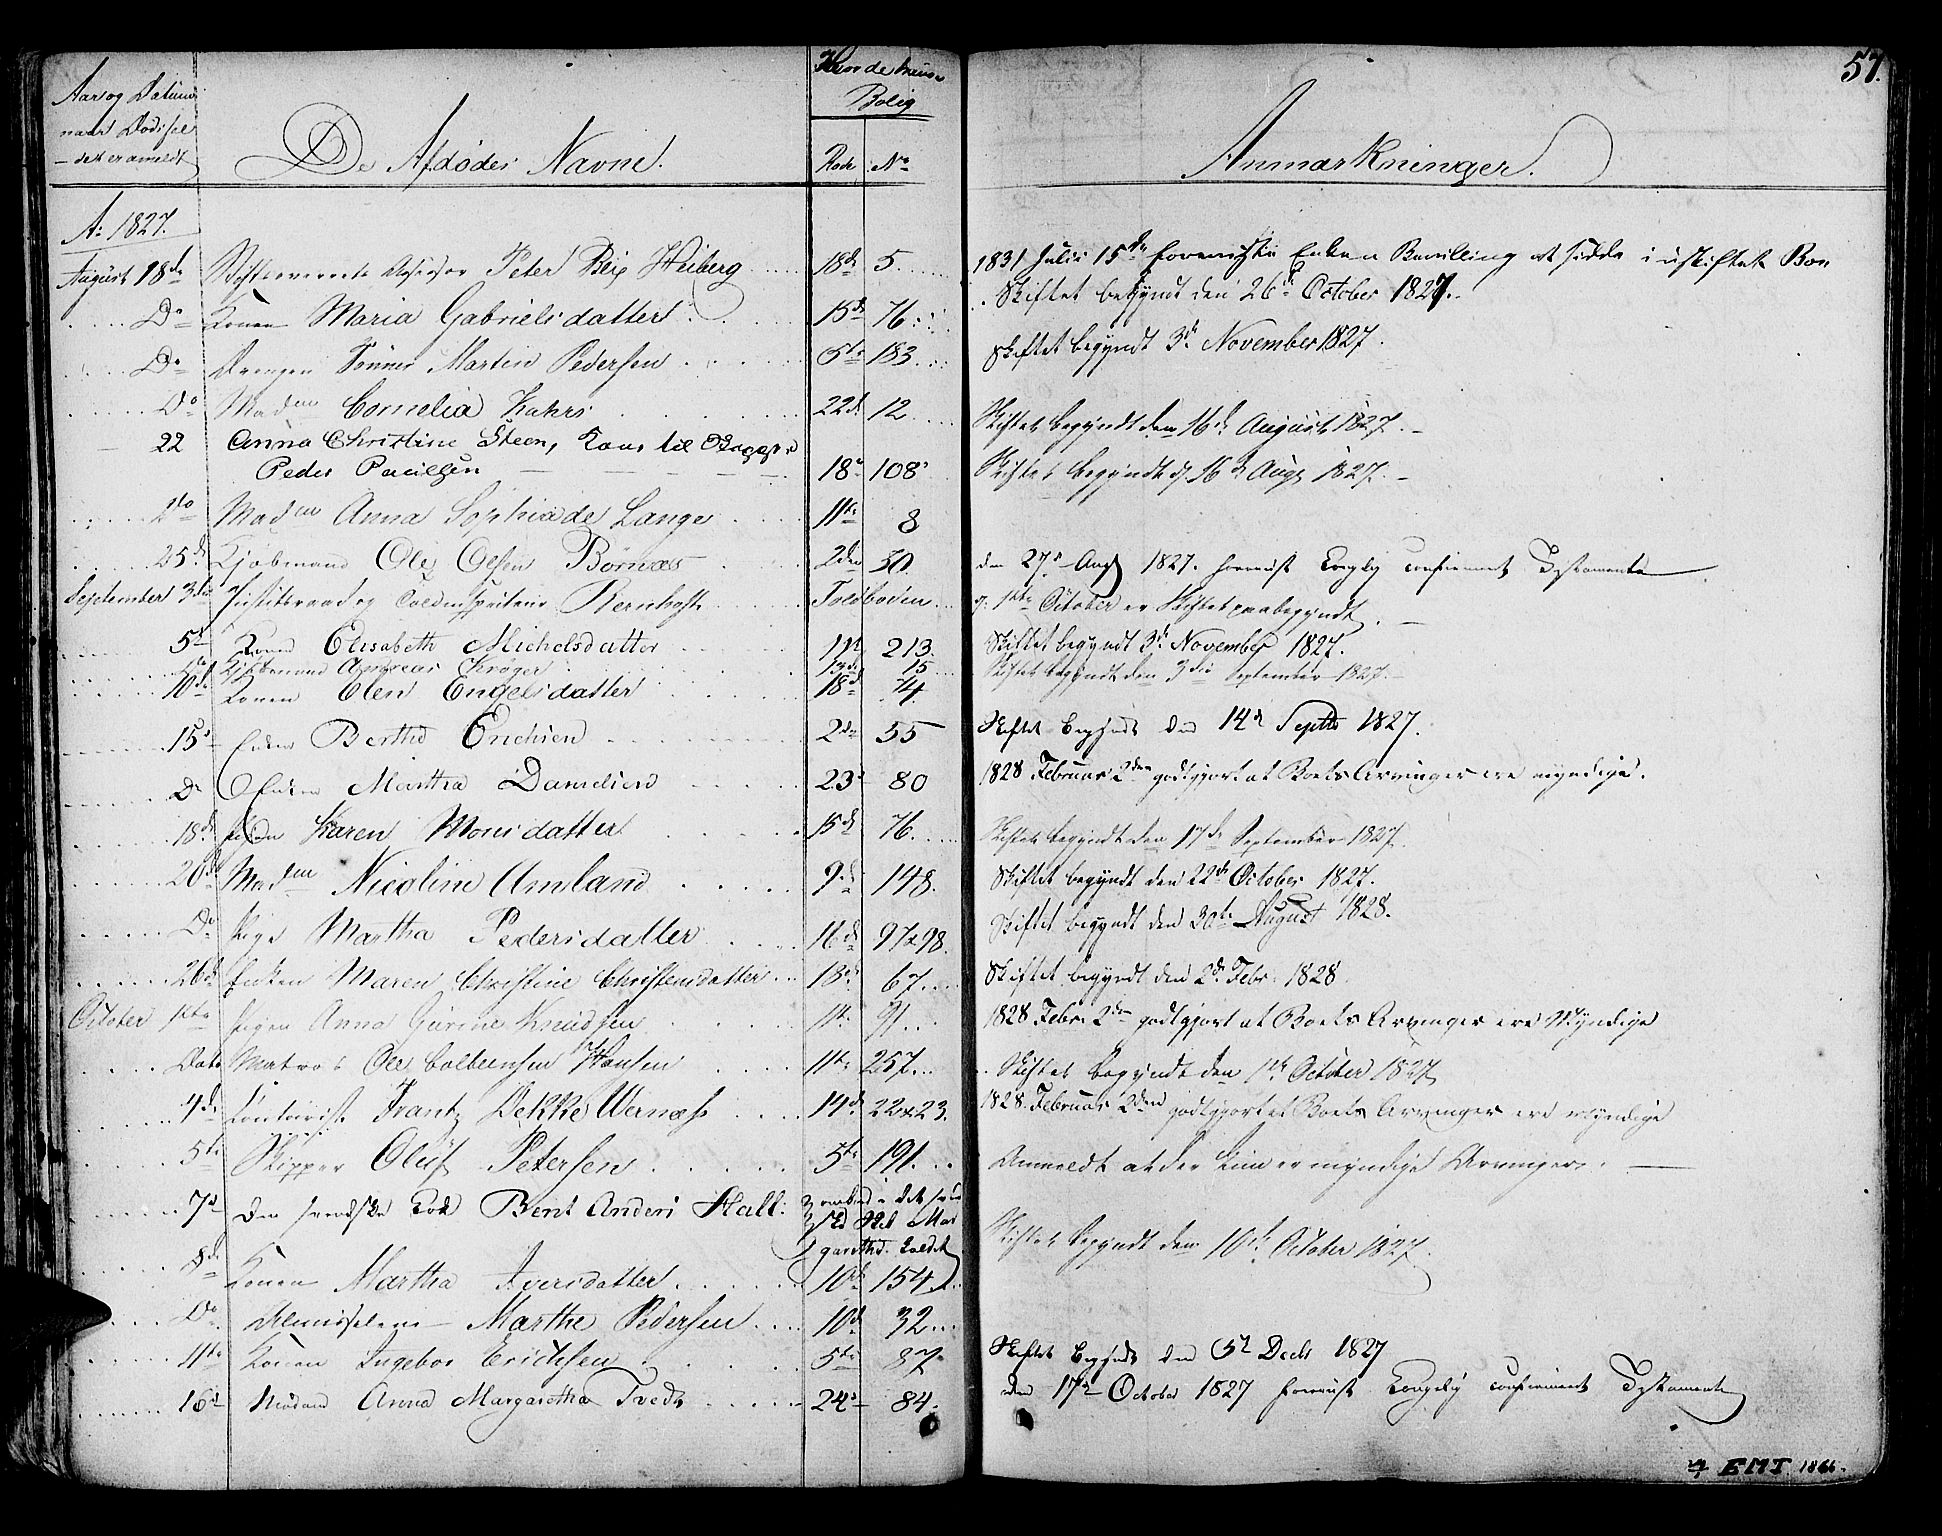 57.
Aar og Datum
naar Dødsfal
det er ameldt
De Afdødes Navne.
Hvor de havde
Bolig
Rode No
Anmærkninger.
Ao 1827.
August 18de Assessor Peter Heiberg 18de 5.
1831 Julii 15de foreviiste Enken Bevilling at sidde i uskiftet Boe
Do Konen Maria Gabrielsdatter 15de 76.
Skiftet begyndt den 26de October 1827.
Do Drengen Tønnes Martin Pedersen 6te 183
Skiftet begyndt 3de November 1827.
Do Madme Cornelia Kahrs 22de 12
Skiftet begyndt den 16de August 1827.
22 Anna Christine Steen, Kone til
Peder Paulsen 18de 108
Skiftet begyndt d. 16de Aug 1827.
Do Madme Anna Sophia de Lange 11te 8
25de Kjøbmand Ole Olsen Børnæs 2den 30.
den 27de Aug 1827. foreviist Kongelig confirmeret Testamente
September 3die Justitsraad og Toldinspecteur Bernhoft Toldboden
d. 1ste October er Skiftet paabegyndt.
5te Konen Elisabeth Michelsdatter 11te 213.
Skiftet begyndt 3de November 1827.
Do Kjøbmand Andreas Krøger 13de 15
Skiftet begyndt den 3die September 1827.
10de Konen Elen Engelsdatter 18de 74.
15de Enken Berthe Erichsen 2den 55
Skiftet begyndt den 14de Septbr 1827.
Do Enken Martha Danielsen 23de 80
1828 Februar 2den godtgjort at Boets Arvinger ere myndige.
18de Karen Monsdatter 15de 76.
Skiftet begyndt den 17de September 1827.
20de Madme Nicoline Amland 9de 148.
Skiftet begyndt den 22de October 1827.
Do Pige Martha Pedersdatter 16de 97 & 98.
Skiftet begyndt den 30te August 1828.
26de Enken Maren Christine Christensdatter 18de 67.
Skiftet begyndt den 2de Febr. 1828.
October 1ste Pigen Anna Gurine Knudsen 11te 91
1828 Febr. 2den godtgjort at Boets Arvinger ere Myndige
Dato Matros Ole Hansen 11te 257.
Skiftet begyndt den 1ste October 1827
4de Contorist Frantz Dekke Wernæss 14de 22 & 23.
1828. Februar 2den godtgjort at Boets Arvinger ere myndige
5te Skipper Oluf Petersen 5te 191.
Anmeldt at der kun er myndige Arvinger.
7de Den svenske Kok Bent Anders Hall: ombord i det
Mar
garetha kaldet
Skiftet begyndt den 10de October 1827.
8de Konen Martha Iversdatter 10de 154
Do Almisselem Marthe Pedersen 10de 32
11te Konen Ingebor Erichsen 5te 87
Skiftet begyndt den 5te Decbr 1827
16de Madame Anna Margaretha Tvedt 24de 84.
den 17de October 1827 foreviist Kongelig confirmeret Testamente
EMJ 1866.